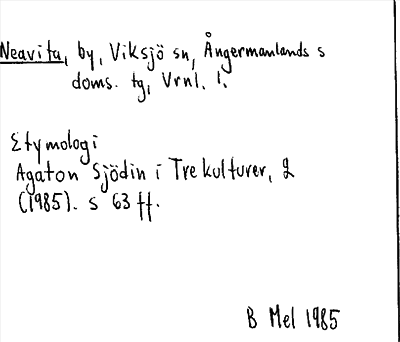 Neavita, by, Viksjö sn, Ångermanlands s
doms. tg, Vrnl. l.
Etymologi
Agaton Sjödin i Tre kulturer, 2
(1985). s 63 ff.
B Mel 1985